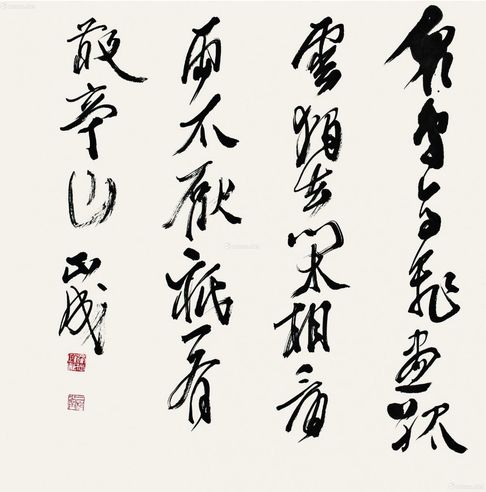 眾鳥高飛盡孤
雲獨去閑相看
兩不厭祇有
敬亭山 正成